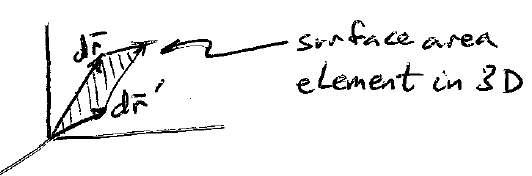 dr̄
surface area
element in 3D
dr̄'